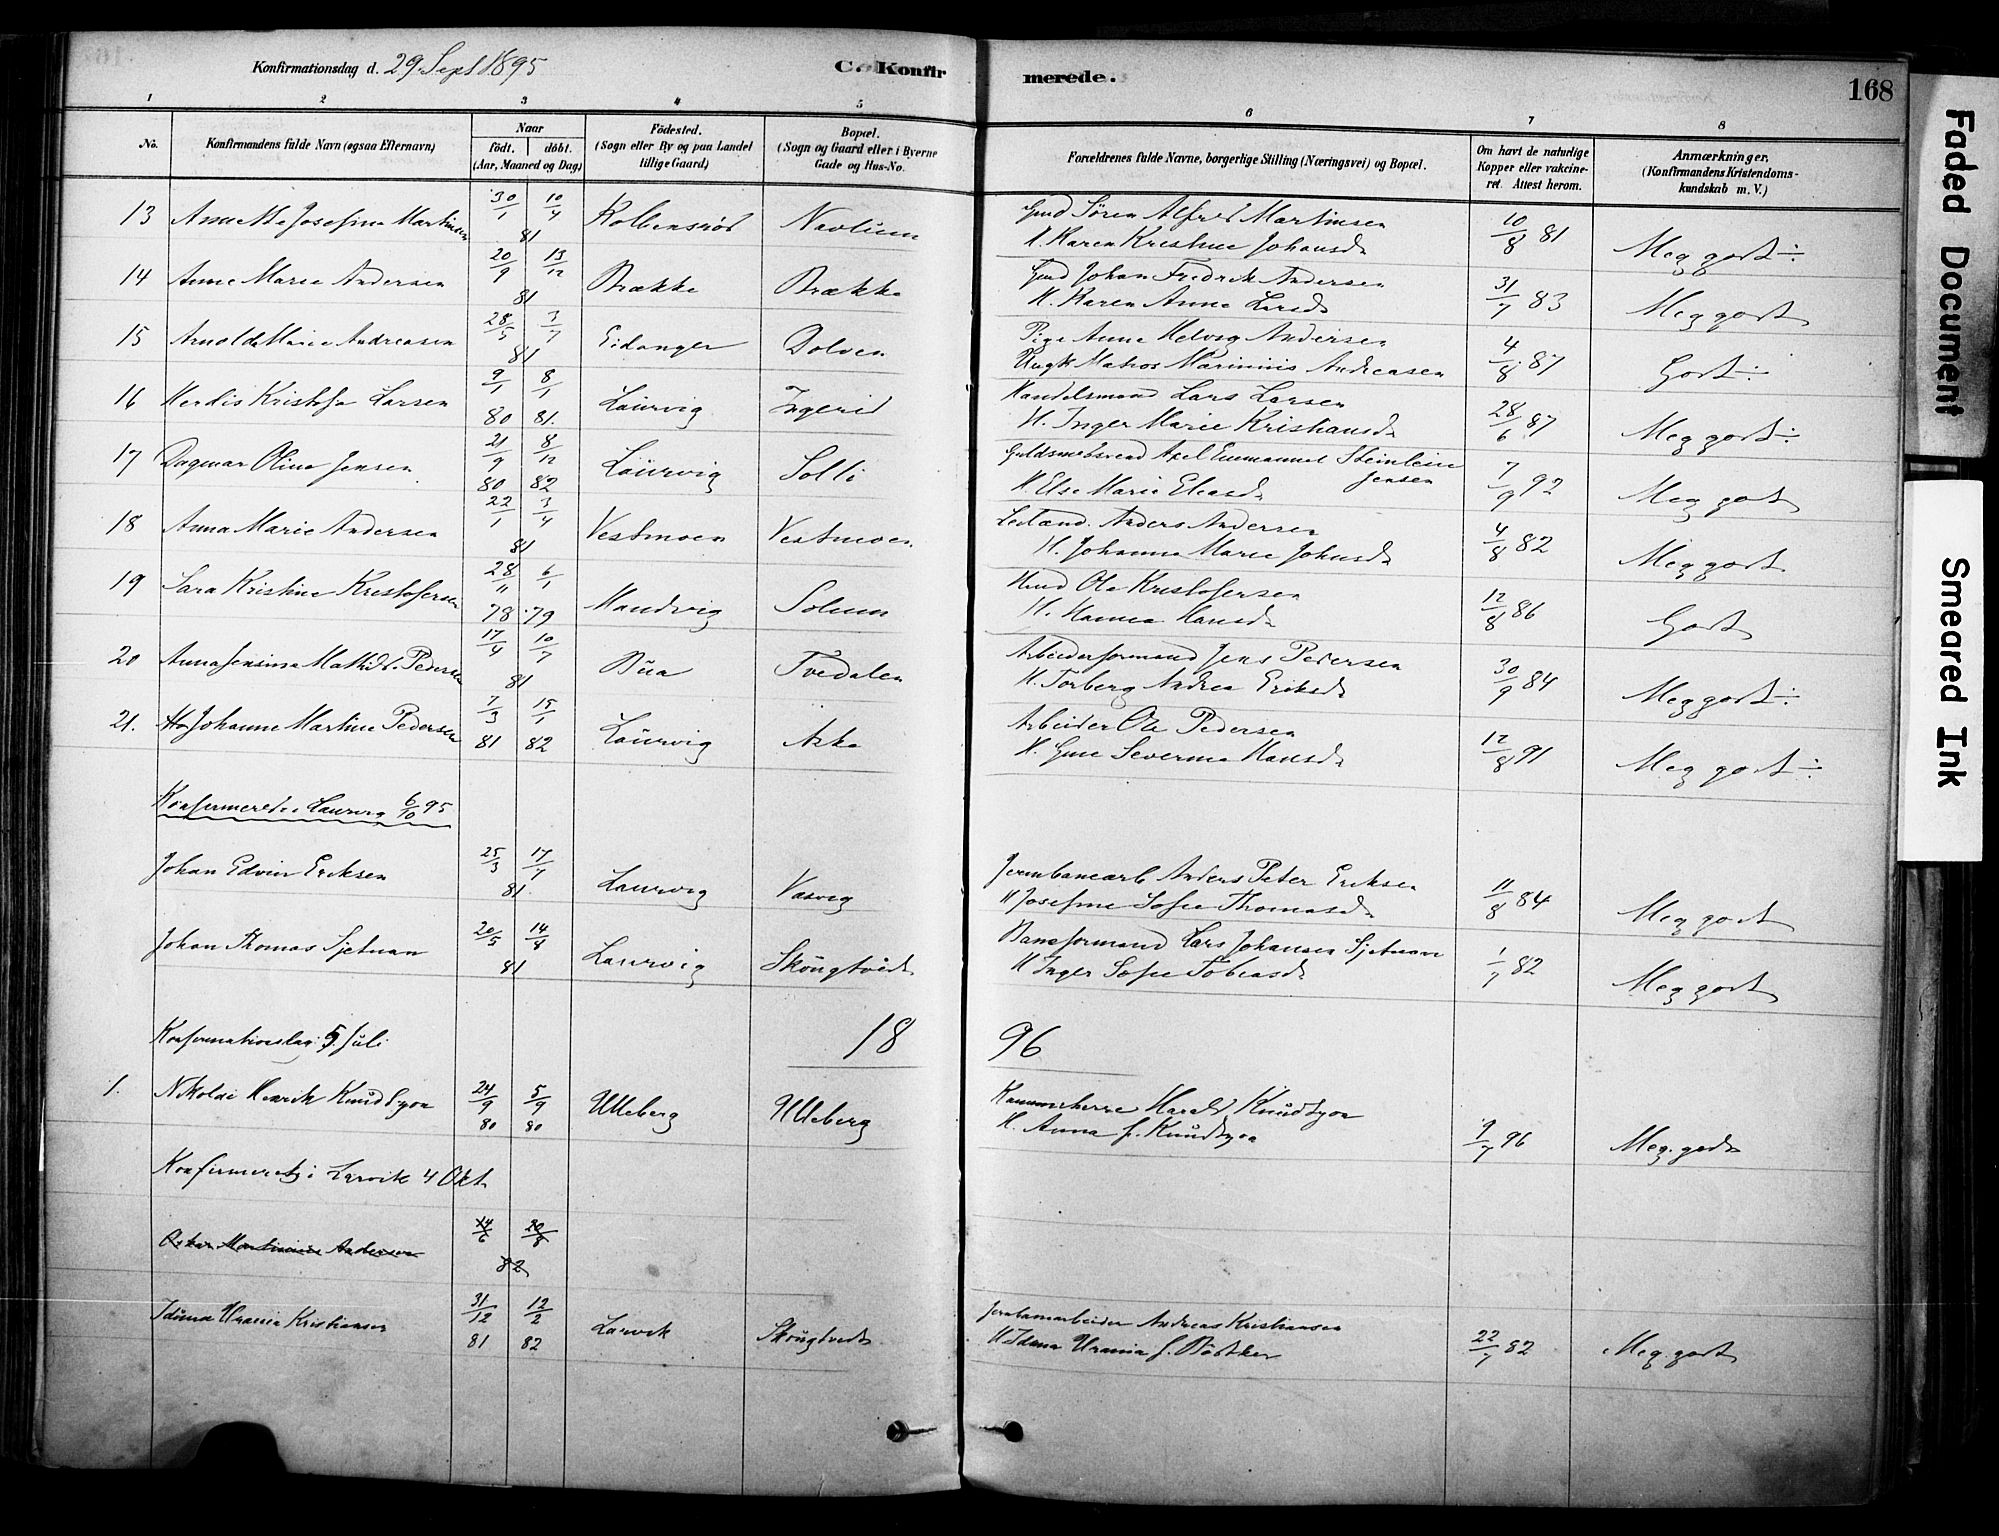 Konfirmationsdag d. 29 Sept 1895
C. Konfir
merede.
168
1 2 3 4 5 6 7 8
No.
Konfirmandens fulde Navn (ogsaa Efternavn)
Naar
födt. döbt.
(Aar, Maaned og Dag)
Födested.
(Sogn eller By og paa Landet
tillige Gaard)
Bopæl.
(Sogn og Gaard eller i Byerne
Gade og Hus-No.
Forældrenes fulde Navne, borgerlige Stilling (Næringsvei) og Bopæl.
Om havt de naturlige
Kopper eller vakcine-
ret. Attest herom.
Anmærkninger.
(Konfirmandens Kristendoms-
kundskab m. V.)
13 Annette Josefine Martinsen 30/1 10/4 81 Kolbensrød Navlum Gmd Søren Alfred Martinsen
H. Karen Kristine Johansd. 10/8 81 Meg godt ÷
14 Anne Marie Andersen 20/9 13/12 81 Brække Brække Gmd Johan Fredrik Andersen
H. Karen Anne Larsd. 31/7 83 Meg godt
15 Arnolda Marie Andreasen 28/5 3/7 81 Eidanger Dolven Pige Anne Helvig Andersen
Ungk Matros Marinius Andreasen 4/8 87 Godt ÷
16 Herdis Kristofa Larsen 9/1 80 8/1 81 Laurvig Ingerid Handelsmand Lars Larsen
H. Inger Marie Kristiansd. 28/6 87 Meg godt ÷
17 Dagmar Oline Jensen 21/9 80 8/12 82 Laurvig Solli Guldsmedsvend Axel Emmanuel Steinlein
Jensen
H. Else Marie Eliasd. 7/9 92 Meg godt
18 Anna Marie Andersen 22/1 3/4 81 Vestmoen Vestmoen Anders Andersen
H. Johanne Marie Johnsd. 4/8 82 Meg godt
19 Sara Kristine Kristofersen 28/11 78 6/1 79 Mandvig Solum Hmd Ole Kristofersen
H. Hanna Hansd. 12/8 86 Godt
20 Anna Jensine Mathild. Pedersen 17/4 10/7 81 Bua Tvedalen Arbeiderformand Jens Pedersen
H. Torberg Andrea Eriksd. 30/9 84 Meg godt ÷
21. Johanne Martine Pedersen 7/3 81 15/1 82 Laurvig Aske Arbeider Ole Pedersen
H. Gine Severine Hansd. 12/8 91 Meg godt ÷
Konfirmeret i Laurvig 6/10 95
Johan Edvin Eriksen 25/3 17/7 81. Laurvig Vasvig Jernbanearb Anders Peter Eriksen
H Josefine Sofie Thomasd. 11/8 84 Meg godt
Johan Thomas Sjetnan 20/5 14/8 81 Laurvig Skougtvedt Baneformand Lars Johansen Sjetnan
H Inger Sofie Tobiasd. 1/7 82 Meg godt
Konfirmationsdag: 5. Juli 18 96
1. Nikolai Henrik Knudtzon 24/9 80 5/9 80 Ulleberg Ulleberg Kammerherre Harald Knudtzon
H. Anna f. Knudtzon 9/7 96 Meg. godt
Konfirmeret i Larvik 4 Okt.
Oskar Martinius Andersen 14/6 20/8 82
Iduna Urania Kristiansen 31/12 81 12/2 82 Larvik Skougtvedt Jernbanearbeider Andreas Kristiansen
H Iduna Urania f. Bødtker 22/7 82 Meg. godt
Faded Document
Smeared Ink